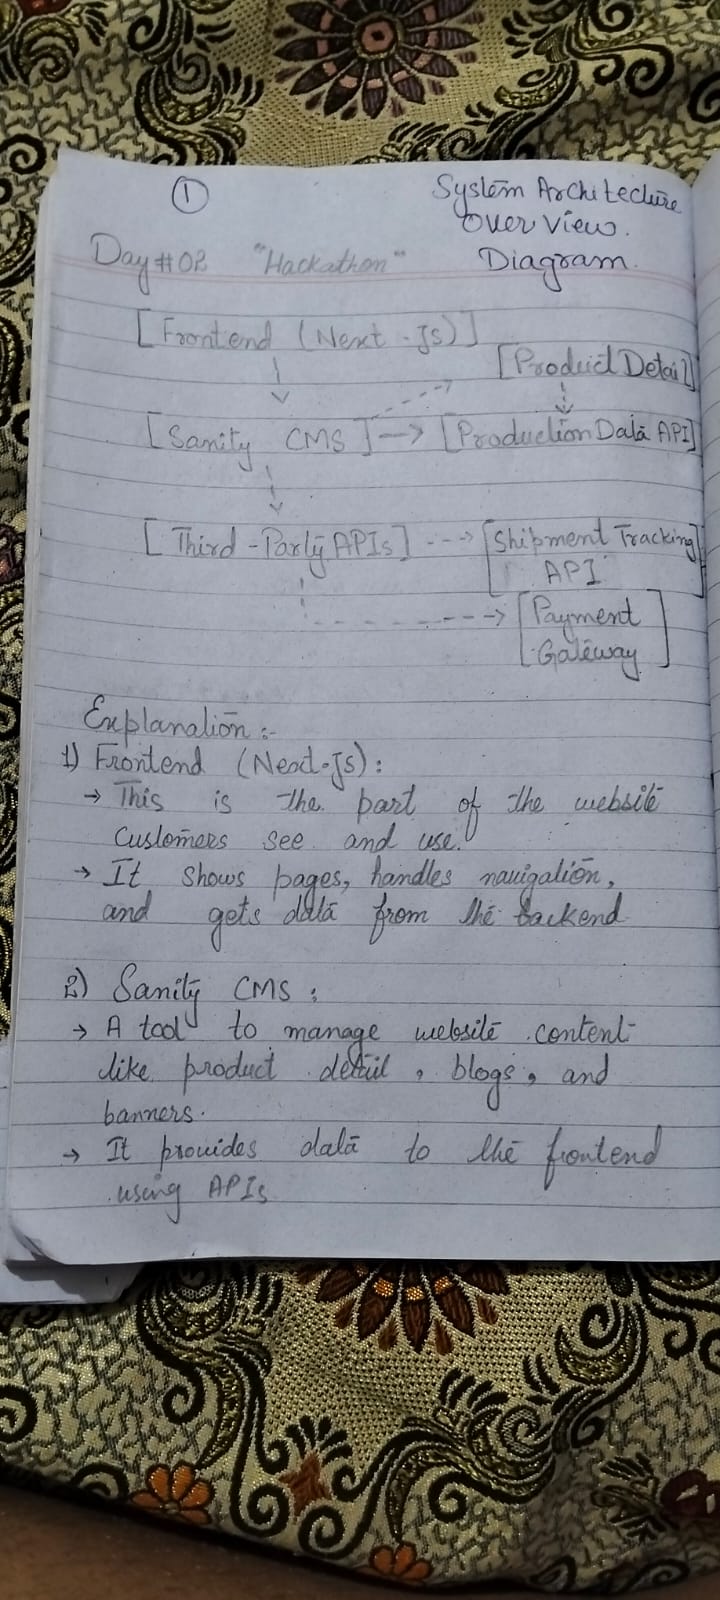 ①
System Architecture
Over View.
Day#02 "Hackathon" Diagram.
[Frontend (Next-Js)]
[Product Detail]
[Sanity CMS] → [Production Data API]
[Third-Party APIs] → [Shipment Tracking
API]
[Payment
Gateway]
Explanation :-
1) Frontend (Next-Js):
→ This is the part of the website
customers see and use.
→ It shows pages, handles navigation,
and gets data from the backend
2) Sanity CMS :
→ A tool to manage website content
like product detail, blogs, and
banners.
→ It provides data to the frontend
using APIs